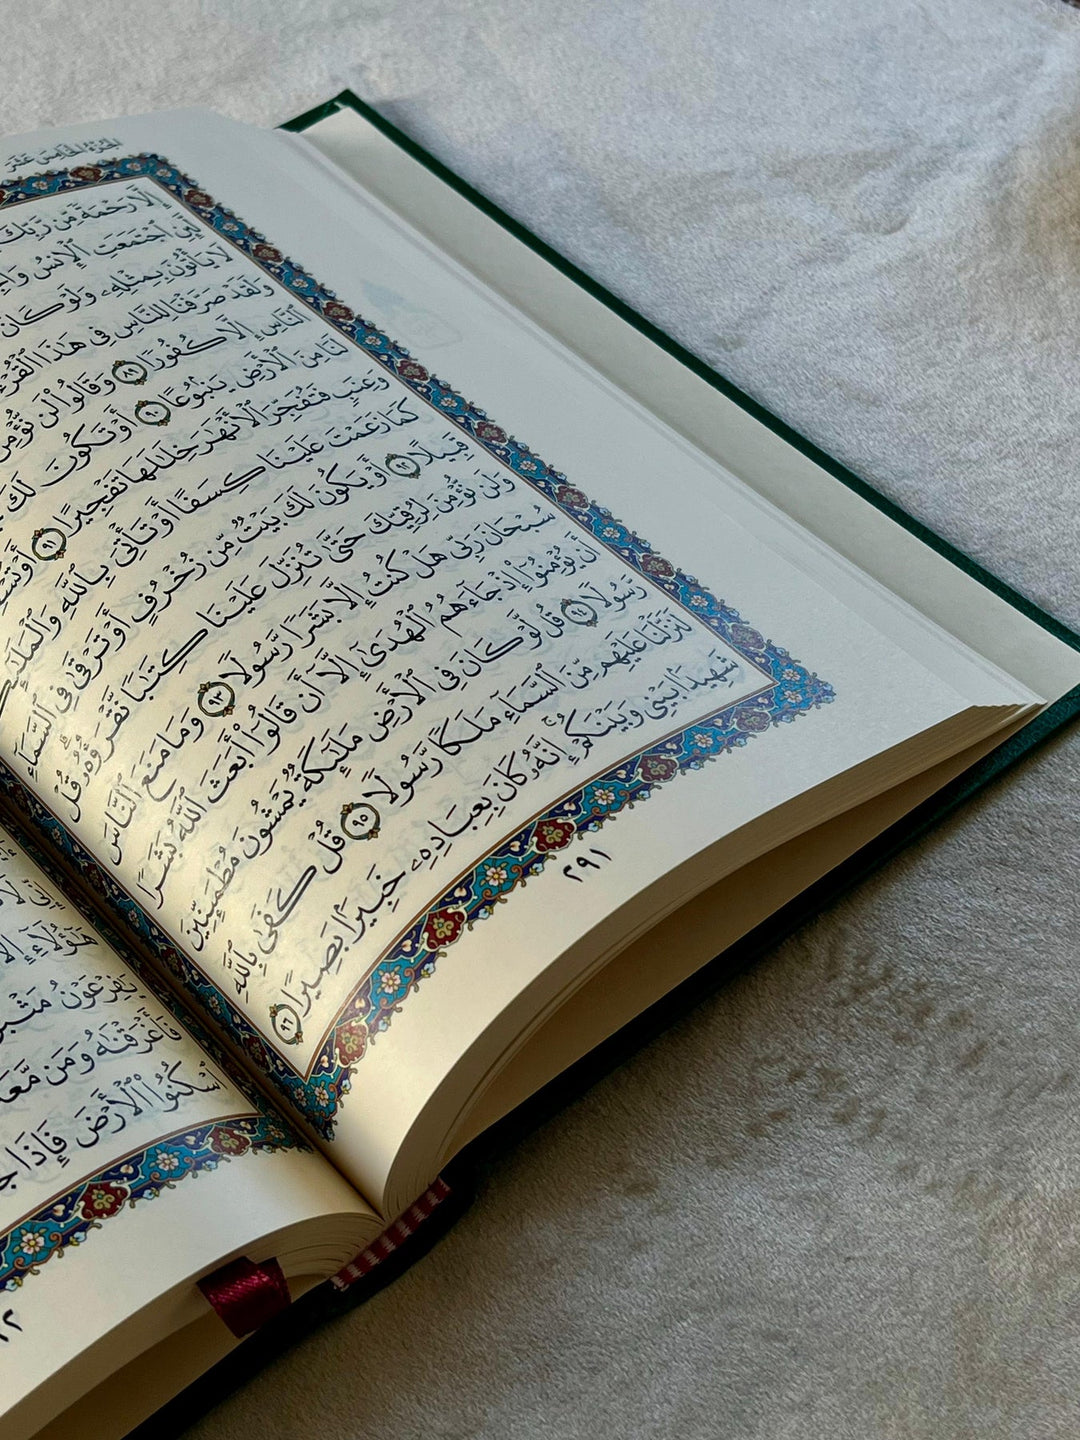 الجزء الخامس عشر
إِلَّا رَحْمَةً مِّن رَّبِّكَ
لَّئِنِ ٱجْتَمَعَتِ ٱلْإِنسُ
لَا يَأْتُونَ بِمِثْلِهِۦ وَلَوْ كَانَ
وَلَقَدْ صَرَّفْنَا لِلنَّاسِ فِى هَٰذَا
ٱلنَّاسِ إِلَّا كُفُورًا ٨٩ وَقَالُوا۟ لَن نُّؤْمِنَ
لَنَا مِنَ ٱلْأَرْضِ يَنۢبُوعًا ٩٠ أَوْ تَكُونَ لَكَ
وَعِنَبٍ فَتُفَجِّرَ ٱلْأَنْهَٰرَ خِلَٰلَهَا تَفْجِيرًا ٩١
كَمَا زَعَمْتَ عَلَيْنَا كِسَفًا أَوْ تَأْتِىَ بِٱللَّهِ
قَبِيلًا ٩٢ أَوْ يَكُونَ لَكَ بَيْتٌ مِّن زُخْرُفٍ أَوْ تَرْقَىٰ فِى ٱلسَّمَآءِ
وَلَن نُّؤْمِنَ لِرُقِيِّكَ حَتَّىٰ تُنَزِّلَ عَلَيْنَا كِتَٰبًا نَّقْرَؤُهُۥ قُلْ
سُبْحَانَ رَبِّى هَلْ كُنتُ إِلَّا بَشَرًا رَّسُولًا ٩٣ وَمَا مَنَعَ ٱلنَّاسَ
أَن يُؤْمِنُوٓا۟ إِذْ جَآءَهُمُ ٱلْهُدَىٰٓ إِلَّآ أَن قَالُوٓا۟ أَبَعَثَ ٱللَّهُ بَشَرًا
رَّسُولًا ٩٤ قُل لَّوْ كَانَ فِى ٱلْأَرْضِ مَلَٰٓئِكَةٌ يَمْشُونَ مُطْمَئِنِّينَ
لَنَزَّلْنَا عَلَيْهِم مِّنَ ٱلسَّمَآءِ مَلَكًا رَّسُولًا ٩٥ قُلْ كَفَىٰ بِٱللَّهِ
شَهِيدًۢا بَيْنِى وَبَيْنَكُمْ إِنَّهُۥ كَانَ بِعِبَادِهِۦ خَبِيرًۢا بَصِيرًا ٩٦
٢٩١
يَٰفِرْعَوْنُ
فَأَغْرَقْنَٰهُ وَمَن مَّعَهُۥ
ٱسْكُنُوا۟ ٱلْأَرْضَ فَإِذَا